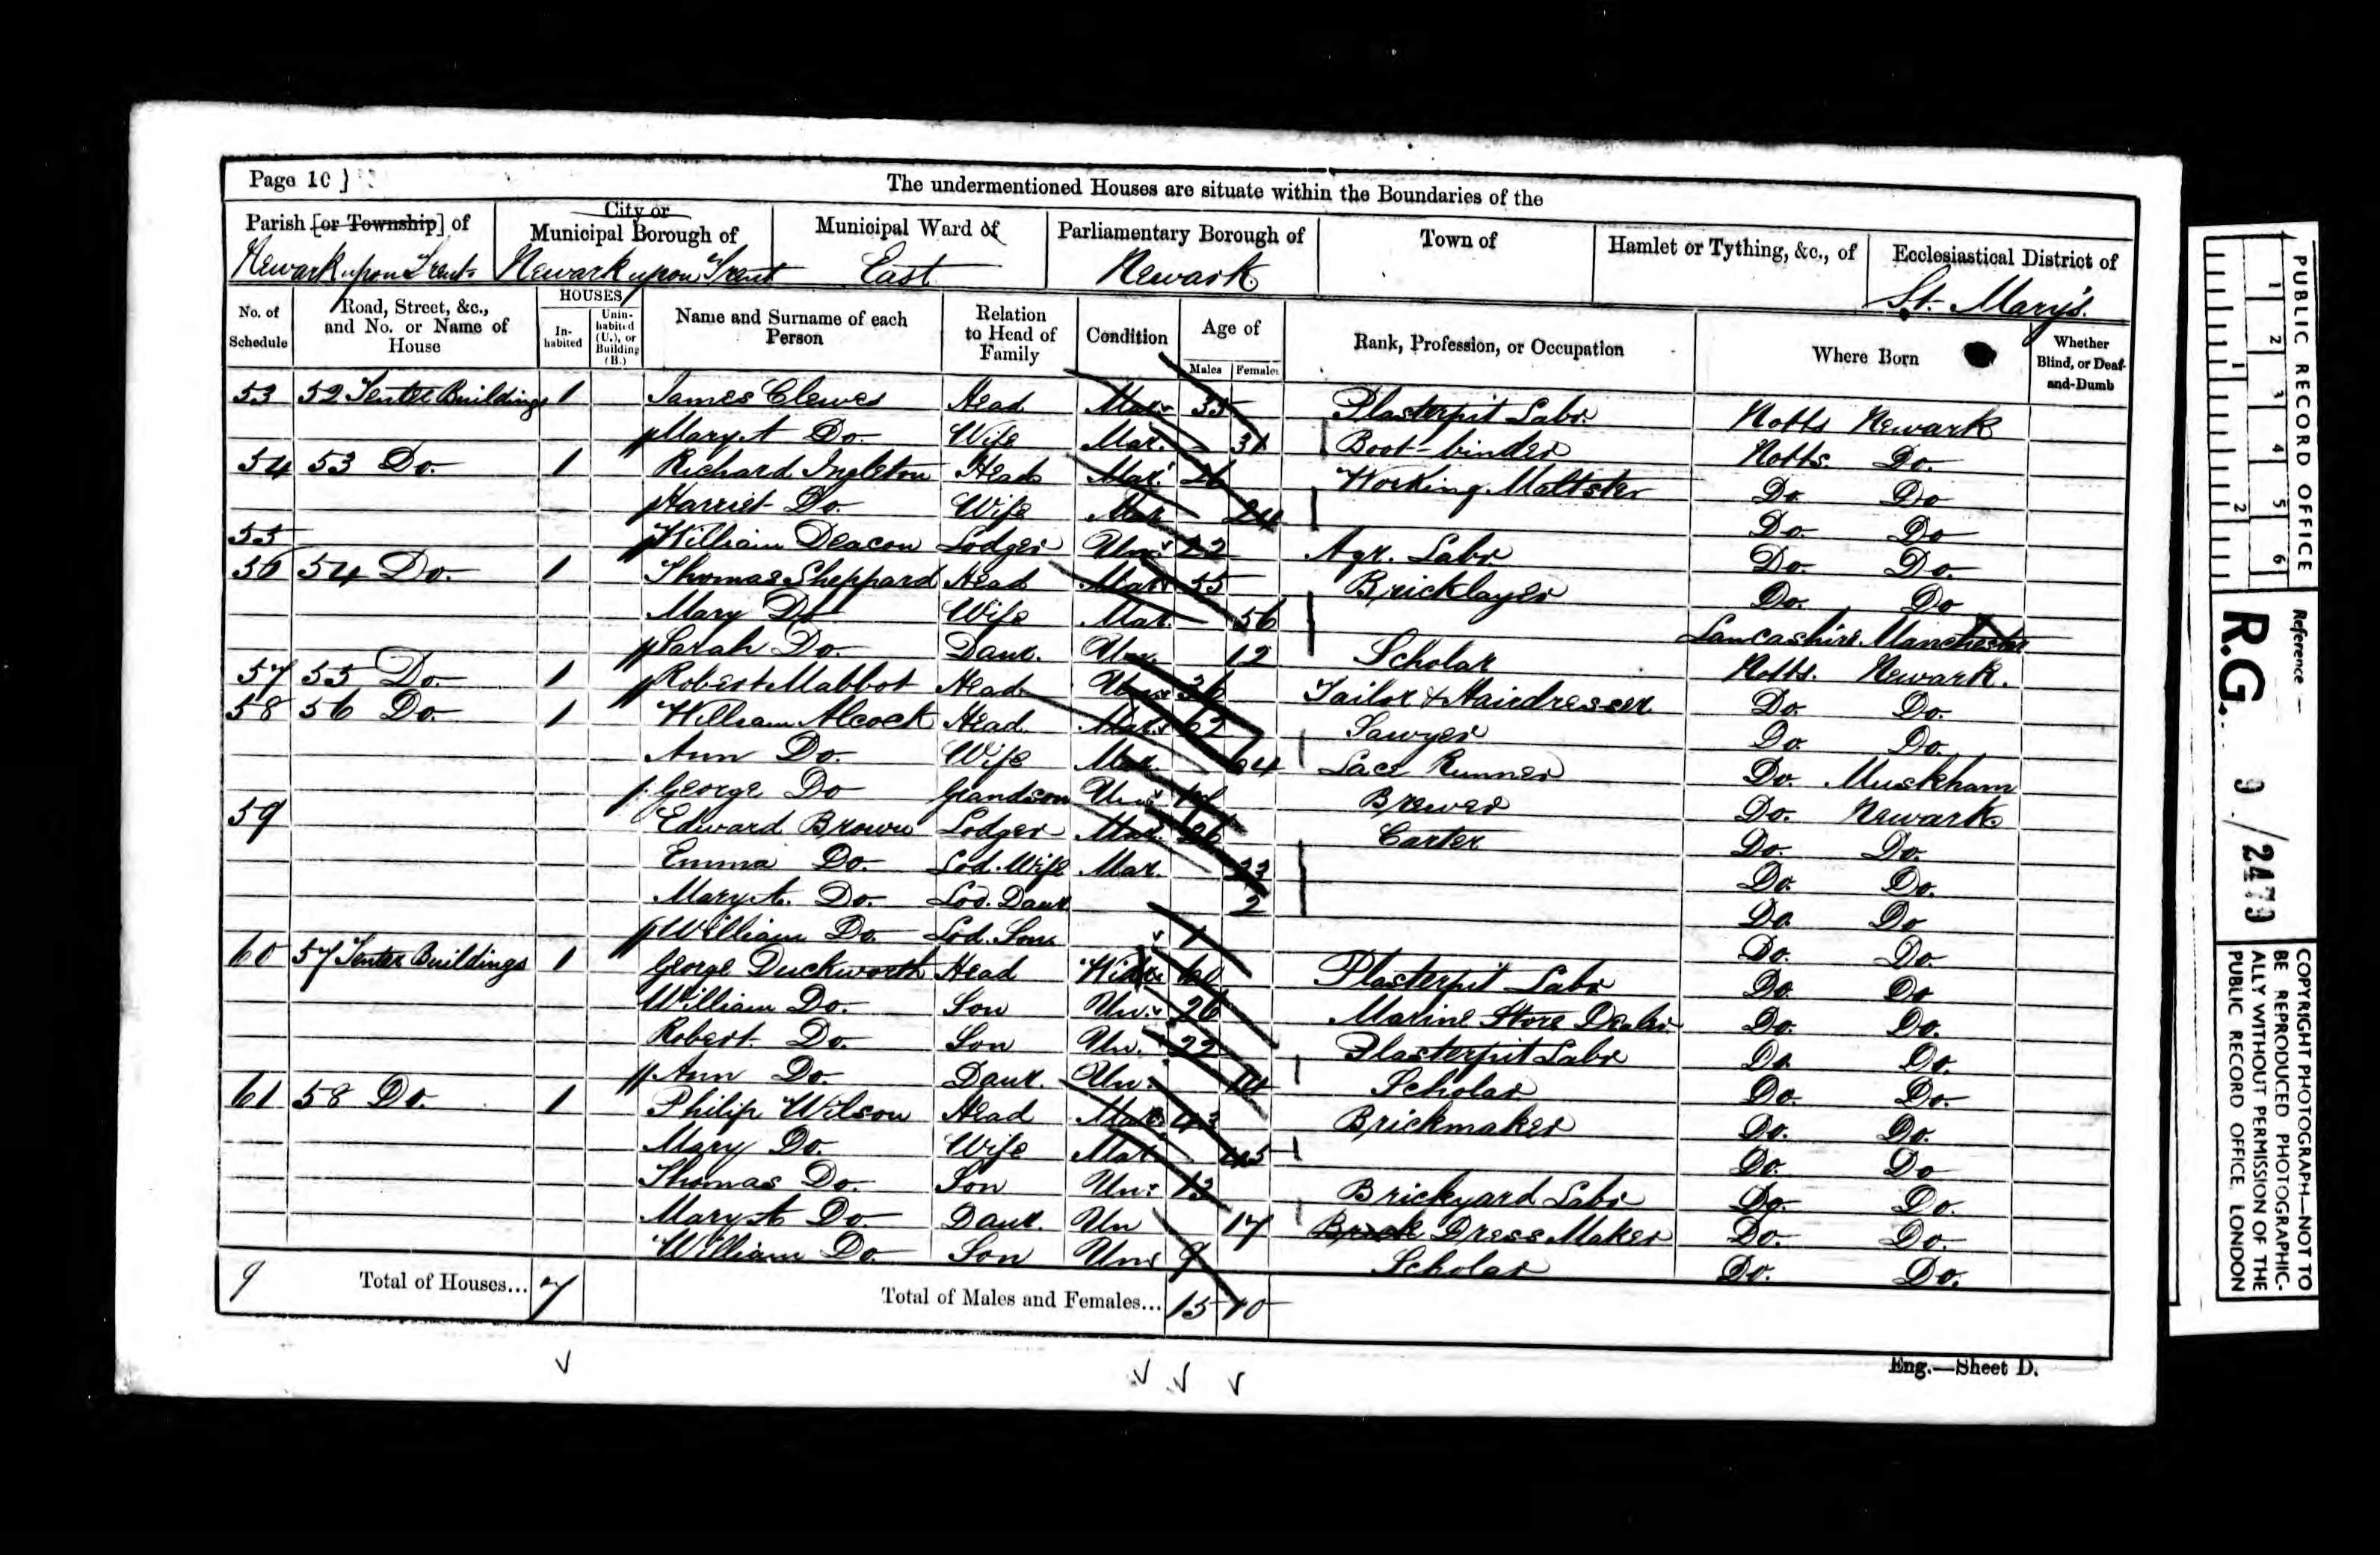 Page 10 }
The undermentioned Houses are situate within the Boundaries of the
Parish [or Township] of
City or
Municipal Borough of
Municipal Ward of
Parliamentary Borough of
Town of
Hamlet or Tything, &c., of
Ecclesiastical District of
Newark upon Trent
Newark upon Trent
East
Newark
St. Mary's.
No. of Schedule
Road, Street, &c., and No. or Name of House
HOUSES
In-habited
Unin-habited (U.), or Building (B.)
Name and Surname of each Person
Relation to Head of Family
Condition
Age of
Males
Females
Rank, Profession, or Occupation
Where Born
Whether Blind, or Deaf-and-Dumb
53 52 Tenter Buildings 1 James Clewes Head Mar. 35 Plasterpit Labr. Notts Newark
Mary A Do. Wife Mar. Boot-binder Notts. Do.
54 53 Do. 1 Richard Ingleton Head Mar. 26 Working Maltster Do Do
Harriet Do. Wife Mar 24 Do Do
55 William Deacon Lodger Un. 22 Agr. Labr. Do. Do.
56 54 Do. 1 Thomas Sheppard Head Mar. 55 Bricklayer Do. Do
Mary Do Wife Mar. 56 Lancashire Manchester
Sarah Do. Daur. Un. 12 Scholar Notts. Newark.
57 55 Do. 1 Robert Mabbot Head Un. 36 Tailor & Hairdresser Do. Do.
58 56 Do. 1 William Alcock Head Mar. 67 Sawyer Do Do.
Ann Do. Wife Mar. 64 Lace Runner Do. Muskham
George Do Grandson Un. Brewer Do. Newark
59 Edward Brown Lodger Mar. 26 Carter Do. Do.
Emma Do. Lod. Wife Mar. 23 Do. Do.
Mary A. Do. Lod. Daur 2 Do. Do
William Do. Lod. Son 1 Do. Do.
60 57 Tenter Buildings 1 George Duckworth Head Widr. 60 Plasterpit Labr Do. Do
William Do. Son Un. 26 Marine Store Dealer Do. Do.
Robert Do. Son Un. 22 Plasterpit Labr Do. Do.
Ann Do. Daur. Un. Scholar Do. Do.
61 58 Do. 1 Philip Wilson Head Mar. 43 Brickmaker Do. Do.
Mary Do. Wife Mar. 45 Do. Do
Thomas Do. Son Un. 13 Brickyard Labr Do. Do.
Mary A Do. Daur. Un 17 Brick Dress Maker Do. Do.
William Do. Son Un 9 Scholar Do. Do.
9 Total of Houses... 7 Total of Males and Females... 15 10
Eng.—Sheet D.
PUBLIC RECORD OFFICE
1 2 3 4 5 6
1 2
Reference —
R.G. 9/2479
COPYRIGHT PHOTOGRAPH—NOT TO
BE REPRODUCED PHOTOGRAPHIC-
ALLY WITHOUT PERMISSION OF THE
PUBLIC RECORD OFFICE. LONDON